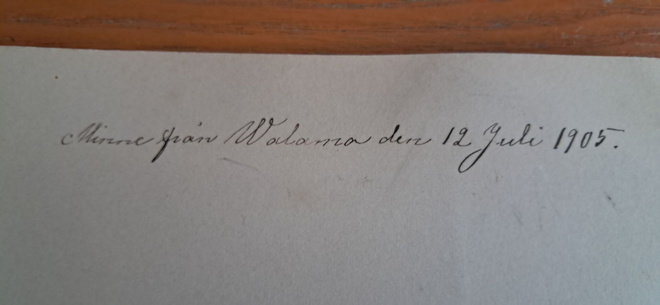 Minne från Walama den 12 Juli 1905.